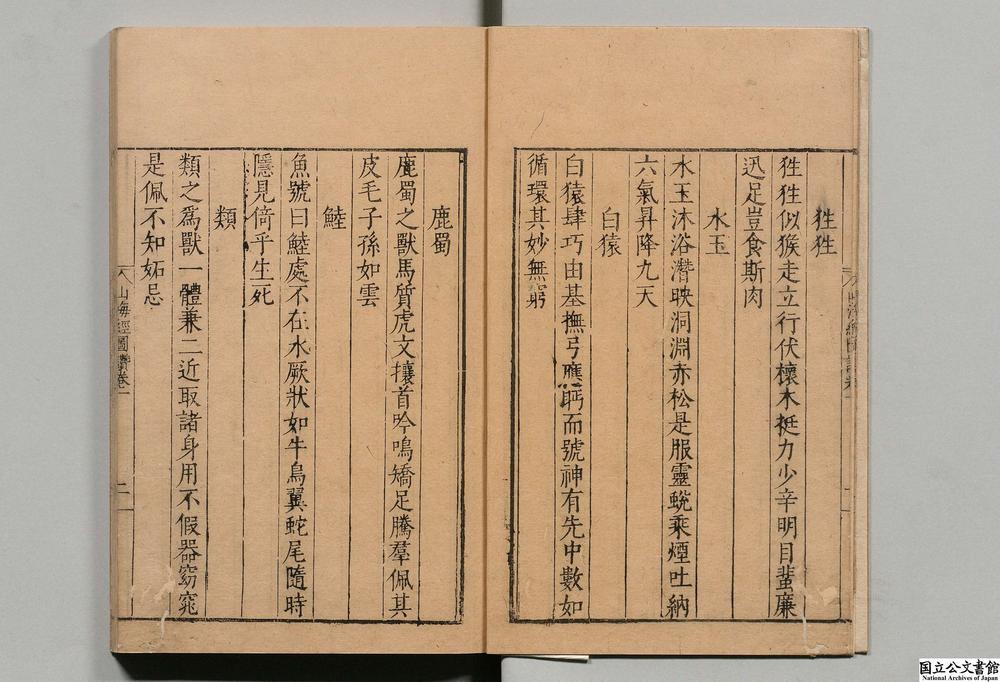 狌狌
狌狌似猴走立行伏櫰木挺力少辛明目蜚廉
迅足豈食斯肉
水玉
水玉沐浴潛映洞淵赤松是服靈蛻乘煙吐納
六氣昇降九天
白猿
白猿肆巧由基撫弓應眄而號神有先中數如
循環其妙無窮
鹿蜀
鹿蜀之獸馬質虎文攘首吟鳴矯足騰羣佩其
皮毛子孫如雲
鯥
魚號曰鯥處不在水厥狀如牛鳥翼蛇尾隨時
隱見倚乎生死
類
類之爲獸一體兼二近取諸身用不假器窈窕
是佩不知妬忌
山海經圖讚卷一
二
国立公文書館
National Archives of Japan